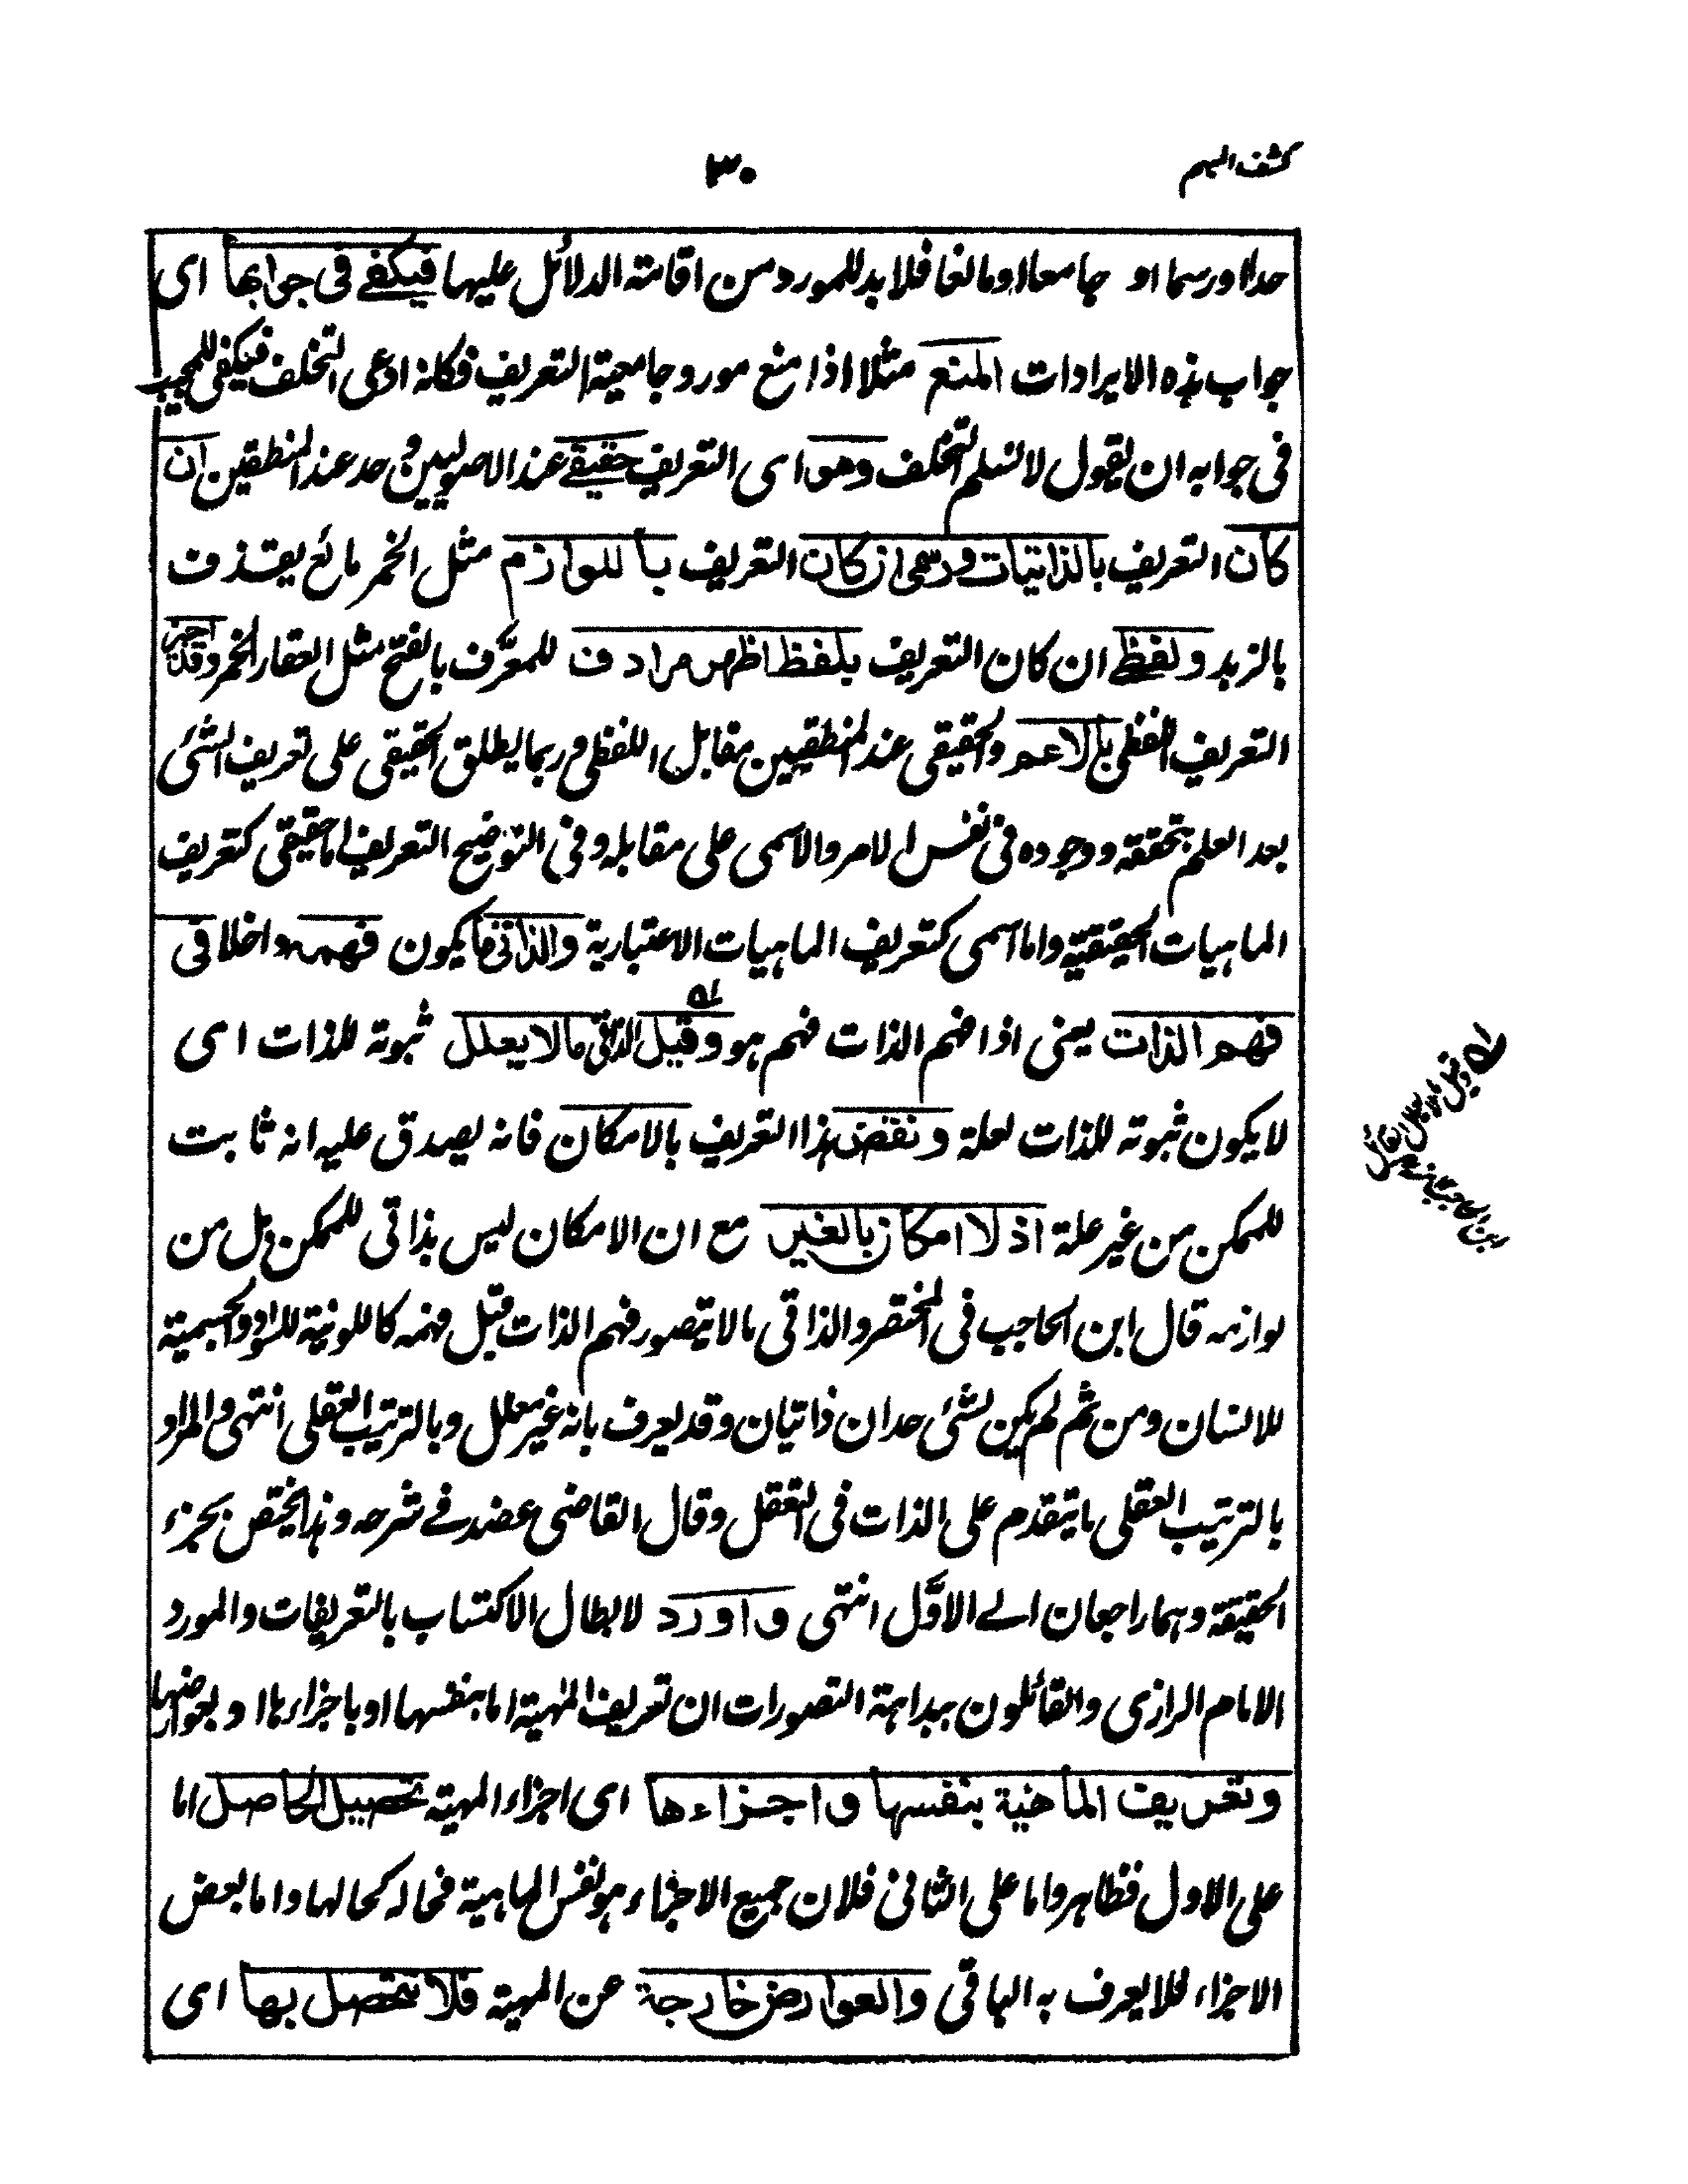 كشف المبهم
٣٠
حدا او رسما او جامعا او مانعا فلا بد للمورد من اقامة الدلائل عليها فيكفے فى جوابها اى
جواب هذه الايرادات المنع مثلا اذا منع مورد جامعية التعريف فكانه ادعى التخلف فيكفى للمجيب
فى جوابه ان يقول لا نسلم التخلف وهو اى التعريف حقيقے عند الاصوليين و حد عند المنطقين ان
كان التعريف بالذاتيات ورسمى ان كان التعريف باللوازم مثل الخمر مائع يقذف
بالزبد ولفظے ان كان التعريف بلفظ اظهر مرادف للمعرَّف بالفتح مثل العقار الخمر وقد اجيز
التعريف اللفظى بالاعم والحقيقى عند المنطقيين مقابل اللفظى و ربما يطلق الحقيقى على تعريف الشئ
بعد العلم بتحققه ووجوده فى نفس الامر والاسمى على مقابله وفى التوضيح التعريف اما حقيقى كتعريف
الماهيات الحقيقية واما اسمى كتعريف الماهيات الاعتبارية والذاتى ما يكون فهمه داخلا فى
فهم الذات يعنى اذا فهم الذات فهم هو وقيل الذاتى مالا يعلل ثبوته للذات اى
لا يكون ثبوته للذات لعلة ونقض هذا التعريف بالامكان فانه يصدق عليه انه ثابت
للممكن من غير علة اذ لا امكان بالغير مع ان الامكان ليس بذاتى للممكن بل من
لوازمه قال ابن الحاجب فى المختصر والذاتى مالا يتصور فهم الذات قبل فهمه كاللونية للسواد والجسمية
للانسان ومن ثم لم يكن لشئ حدان ذاتيان وقد يعرف بانه غير معلل وبالترتيب العقلى انتهى والمراد
بالترتيب العقلى ما يتقدم على الذات فى التعقل وقال القاضى عضد فے شرحه وهذا يختص بجزء
الحقيقة وهما راجعان الے الاوَّل انتهى واورد لابطال الاكتساب بالتعريفات والمورد
الامام الرازى والقائلون ببداهة التصورات ان تعريف المهية اما بنفسها او باجزاءها او بعوارضها
وتعريف الماهية بنفسها واجزاءها اى اجزاء المهية تحصيل الحاصل اما
على الاول فظاهر واما على الثانى فلان جميع الاجزاء هو نفس الماهية فحاله كحالها واما بعض
الاجزاء فلا يعرف به الباقى والعوارض خارجة عن المهية فلا تتحصل بها اى